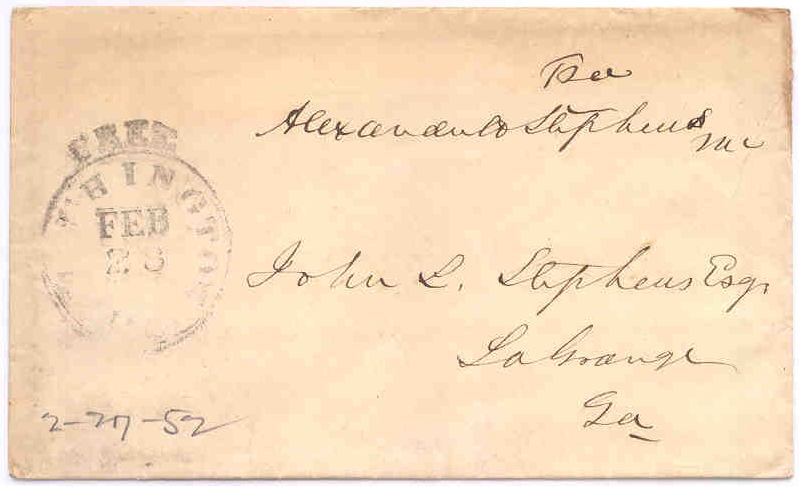 Free
Alexander H Stephens
MC
FREE
WASHINGTON
FEB
28
John L. Stephens Esqr
LaGrange
Ga
2-27-52